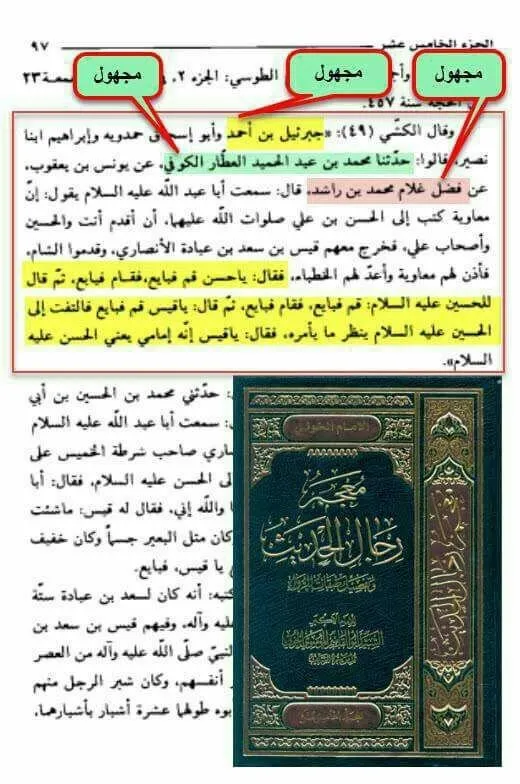 الجزء الخامس عشر ٩٧
مجهول
مجهول
مجهول
الطوسي: الجزء ٢،
سنة ٤٥٧.
وقال الكشّي (٤٩): «جبرئيل بن أحمد وأبو إسحاق حمدويه وإبراهيم ابنا
نصير، قالوا: حدّثنا محمد بن عبد الحميد العطّار الكوفي، عن يونس بن يعقوب،
عن فضل غلام محمد بن راشد، قال: سمعت أبا عبد الله عليه السلام يقول: إنّ
معاوية كتب إلى الحسن بن علي صلوات الله عليهما، أن أقدم أنت والحسين
وأصحاب علي، فخرج معهم قيس بن سعد بن عبادة الأنصاري، وقدموا الشام،
فأذن لهم معاوية وأعدّ لهم الخطباء، فقال: ياحسن قم فبايع،فقام فبايع، ثمّ قال
للحسين عليه السلام: قم فبايع، فقام فبايع، ثمّ قال: ياقيس قم فبايع فالتفت إلى
الحسين عليه السلام ينظر ما يأمره، فقال: ياقيس إنّه إمامي يعني الحسن عليه
السلام».
حدّثني محمد بن الحسين بن أبي
: سمعت أبا عبد الله عليه السلام
صاري صاحب شرطة الخميس على
لى الحسن عليه السلام، فقال: أبا
ا والله إني، فقال له قيس: ماشئت
كان مثل البعير جسماً وكان خفيف
ي يا قيس، فبايع.
كتبه: أنه كان لسعد بن عبادة ستّة
عليه وآله، وفيهم قيس بن سعد بن
نبيّ صلّى الله عليه وآله من العصر
أنفسهم، وكان شبر الرجل منهم
بوه طولهما عشرة أشبار بأشبارهما.
الإمام الخوئي
معجم
رجال الحديث
وتفصيل طبقات الرواة